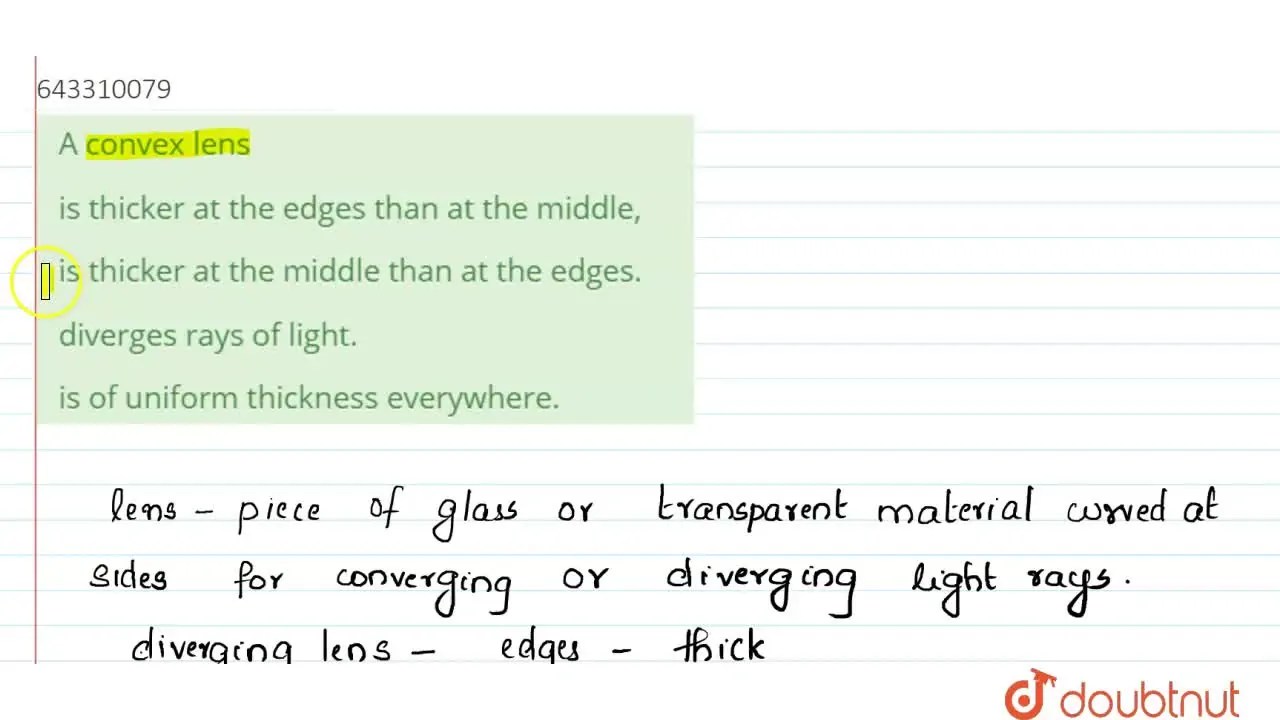 643310079
A convex lens
is thicker at the edges than at the middle,
is thicker at the middle than at the edges.
diverges rays of light.
is of uniform thickness everywhere.
lens - piece of glass or transparent material curved at
sides for converging or diverging light rays.
diverging lens - edges - thick
doubtnut